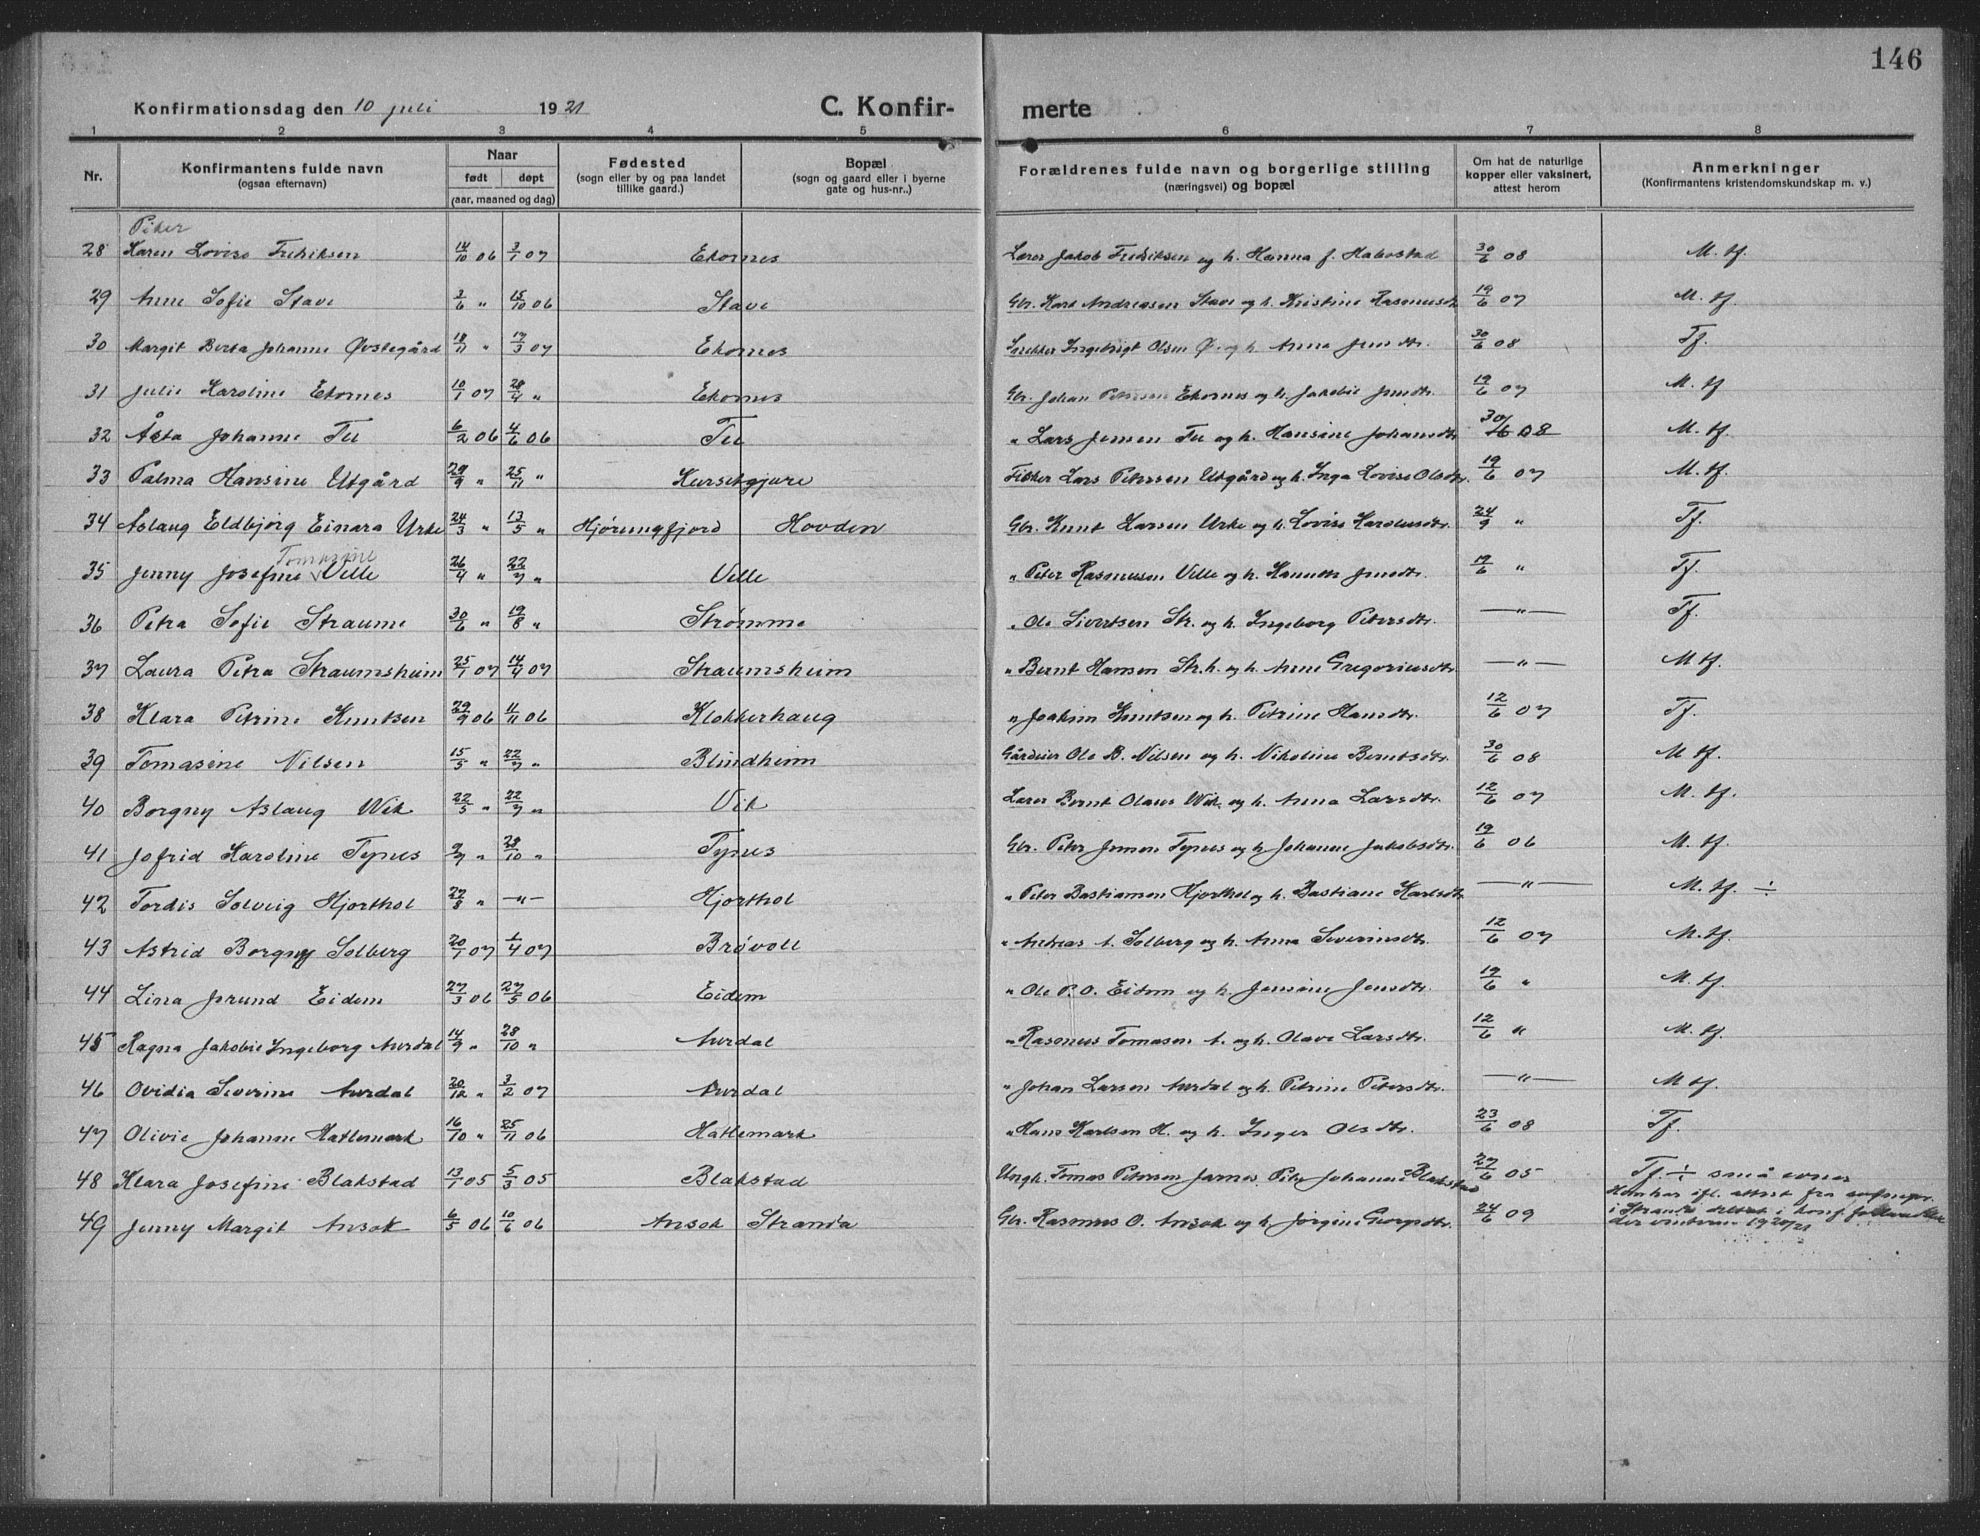 146
Konfirmationsdag den 10 juli 1921 C. Konfir- merte
1 2 3 4 5 6 7 8
Nr. Konfirmantens fulde navn (ogsaa efternavn) Naar født døpt (aar, maaned og dag) Fødested (sogn eller by og paa landet tillike gaard.) Bopæl (sogn og gaard eller i byerne gate og hus-nr..) Forældrenes fulde navn og borgerlige stilling (næringsvei) og bopæl Om hat de naturlige kopper eller vaksinert, attest herom Anmerkninger (Konfirmantens kristendomskundskap m. v.)
Piker
28 Karen Lovise Fredriksen 14/10 06 3/1 07 Ekornes Lærer Jakob Fredriksen og h. Hanna f. Hakostad 30/6 08 M. tf.
29 Anne Sofie Stave 3/6 " 15/10 06 Stave Gbr. Karl Andreasen Stave og h. Kristine Rasmusdtr. 19/6 07 M. tf.
30 Margit Berta Johanne Øvstegård 18/11 " 17/3 07 Ekornes Snekker Ingebrigt Olsen Ø. og h. Anna Jensdtr. 30/6 08 Tf.
31 Julie Karoline Ekornes 10/1 07 28/4 " Ekornes Gbr. Johan Petersen Ekornes og h. Jakobie Jensdtr. 19/6 07 M. tf
32 Åsta Johanne Tu 6/2 06 4/6 06 Tu " Lars Jensen Tu og h. Hansine Johansdtr. 30/6 08 M. tf.
33 Palma Hansine Utgård 29/9 " 25/11 " Kursetgjære Fisker Lars Petersen Utgård og h. Inga Lovise Olsdtr. 19/6 07 M. tf.
34 Åslaug Eldbjørg Einara Urke 24/3 " 13/5 " Hjørungfjord Hovden Gbr. Knut Larsen Urke og h. Lovise Karolusdtr. 24/9 " Tf.
35 Jenny Josefine Tomasine Velle 26/4 " 22/7 " Velle " Peter Rasmussen Velle og h. Jensdtr. 19/6 " Tf.
36 Petra Sofie Straume 30/6 " 19/8 " Strømme " Ole Sivertsen Str. og h. Ingeborg Petersdtr. —"— Tf.
37 Laura Petra Straumsheim 25/1 07 14/4 07 Straumsheim " Bernt Hansen Str.h. og h. Anne Gregoriusdtr. —"— M tf.
38 Klara Petrine Knutsen 29/9 06 11/11 06 Klokkerhaug " Joakim Knutsen og h. Petrine Hansdtr. 12/6 07 Tf.
39 Tomasine Nilsen 15/5 " 22/7 " Blindheim Gårdeier Ole B. Nilsen og h. Nikoline Berntsdtr. 30/6 08 M tf.
40 Borgny Aslaug Wik 22/5 " 22/7 " Vik Lærer Bernt Olaus Wik og h. Anna Larsdtr. 12/6 07 M. tf.
41 Jofrid Karoline Tynes 9/7 " 28/10 " Tynes Gbr. Peter Jensen Tynes og h. Johanne Jakobsdtr. 19/6 06 M. tf.
42 Tordis Solveig Hjorthol 27/8 " —"— Hjorthol " Peter Bastiansen Hjorthol og h. Bastiane Karlsdtr. —"— M. tf. ÷
43 Astrid Borgny Solberg 20/1 07 1/4 07 Brøvoll " Andreas A. Solberg og h. Anna Severinsdtr. 12/6 07 M. tf.
44 Lina Jorund Eidem 27/3 06 27/5 06 Eidem " Ole P. O. Eidem og h. Jensine Jensdtr. 19/6 " M. tf.
45 Ragna Jakobie Ingeborg Aurdal 14/9 " 28/10 " Aurdal " Rasmus Tomasen A. og h. Olave Larsdtr. 12/6 " M. tf.
46 Ovidia Severine Aurdal 20/12 " 3/2 07 Aurdal " Johan Larsen Aurdal og h. Petrine Petersdtr. —"— M tf.
47 Olivie Johanne Hatlemark 16/10 " 25/11 06 Hatlemark " Hans Karlsen H. og h. Inger Olsdtr. 23/6 08 Tf.
48 Klara Josefine Blakstad 13/1 05 5/3 05 Blakstad Ungk. Tomas Petersen Jarnes. Pike Johanne Blakstad 27/6 05 Tf. ÷ små evner
49 Jenny Margit Ansok 6/5 06 10/6 06 Ansok Stranda Gbr. Rasmus O. Ansok og h. Jørgine Georgsdtr. 24/6 09 Hun har ifl. attest fra sognepr.
i Stranda deltat i konf.
der vinteren 1920/21